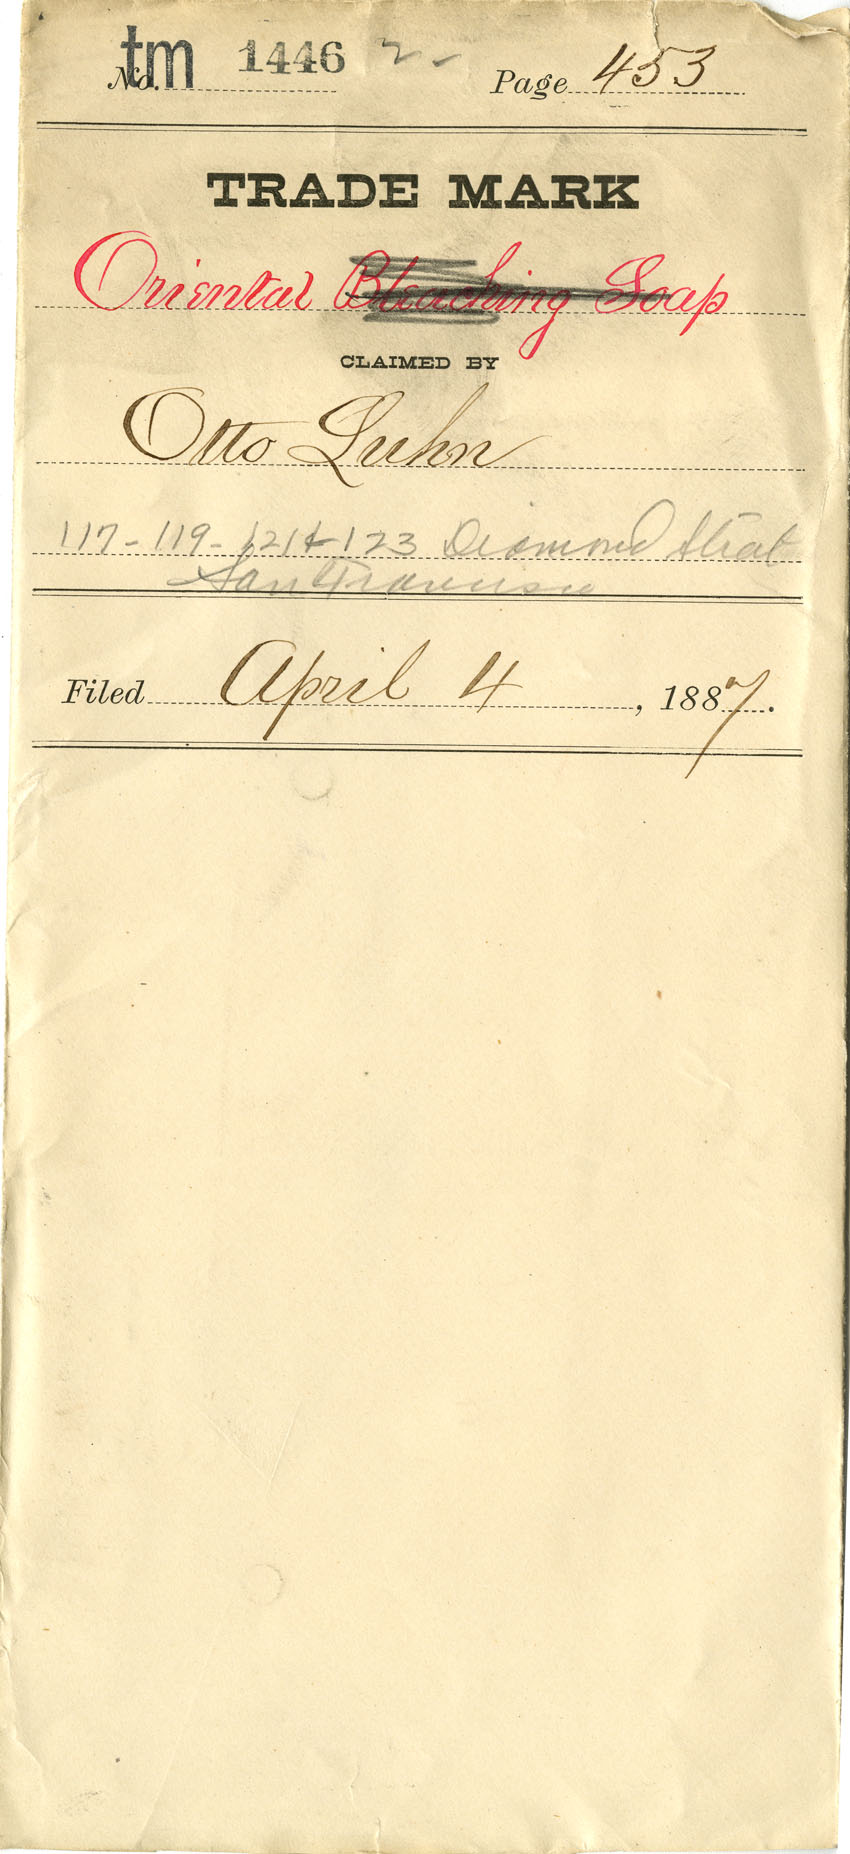 tm
No. 1446 2- Page 453
TRADE MARK
Oriental Bleaching Soap
CLAIMED BY
Otto Luhn
117-119-121 & 123 Diamond Street
San Francisco
Filed April 4, 1887.